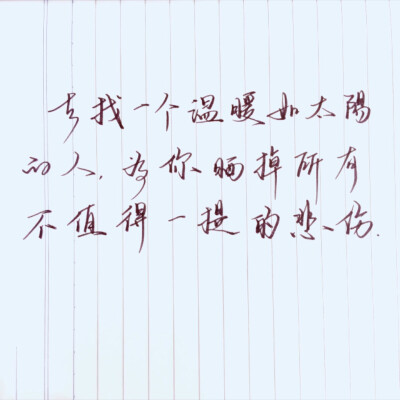 去找一个温暖如太陽
的人.为你晒掉所有
不值得一提的悲伤.